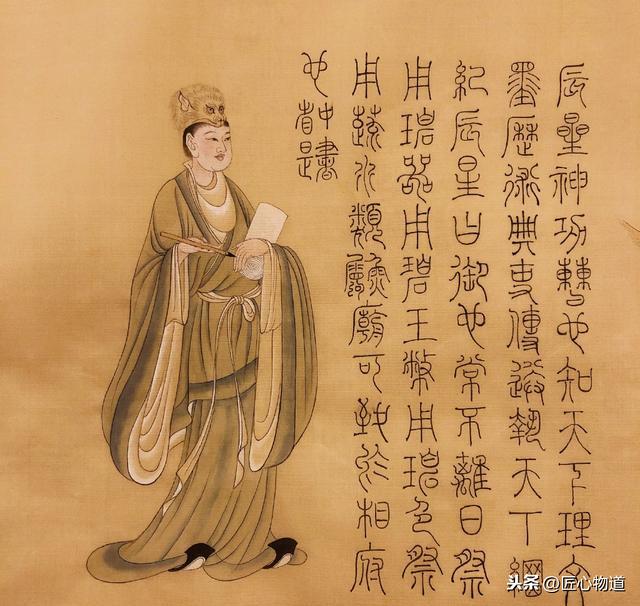 辰星神功曹也知天下理文
墨歷術典吏傳送執天下綱
紀辰星日御也常不離日祭
用碧器用碧玉幣用碧色祭
用蔬水類廟可致於相府
也中書都是
头条@匠心物道